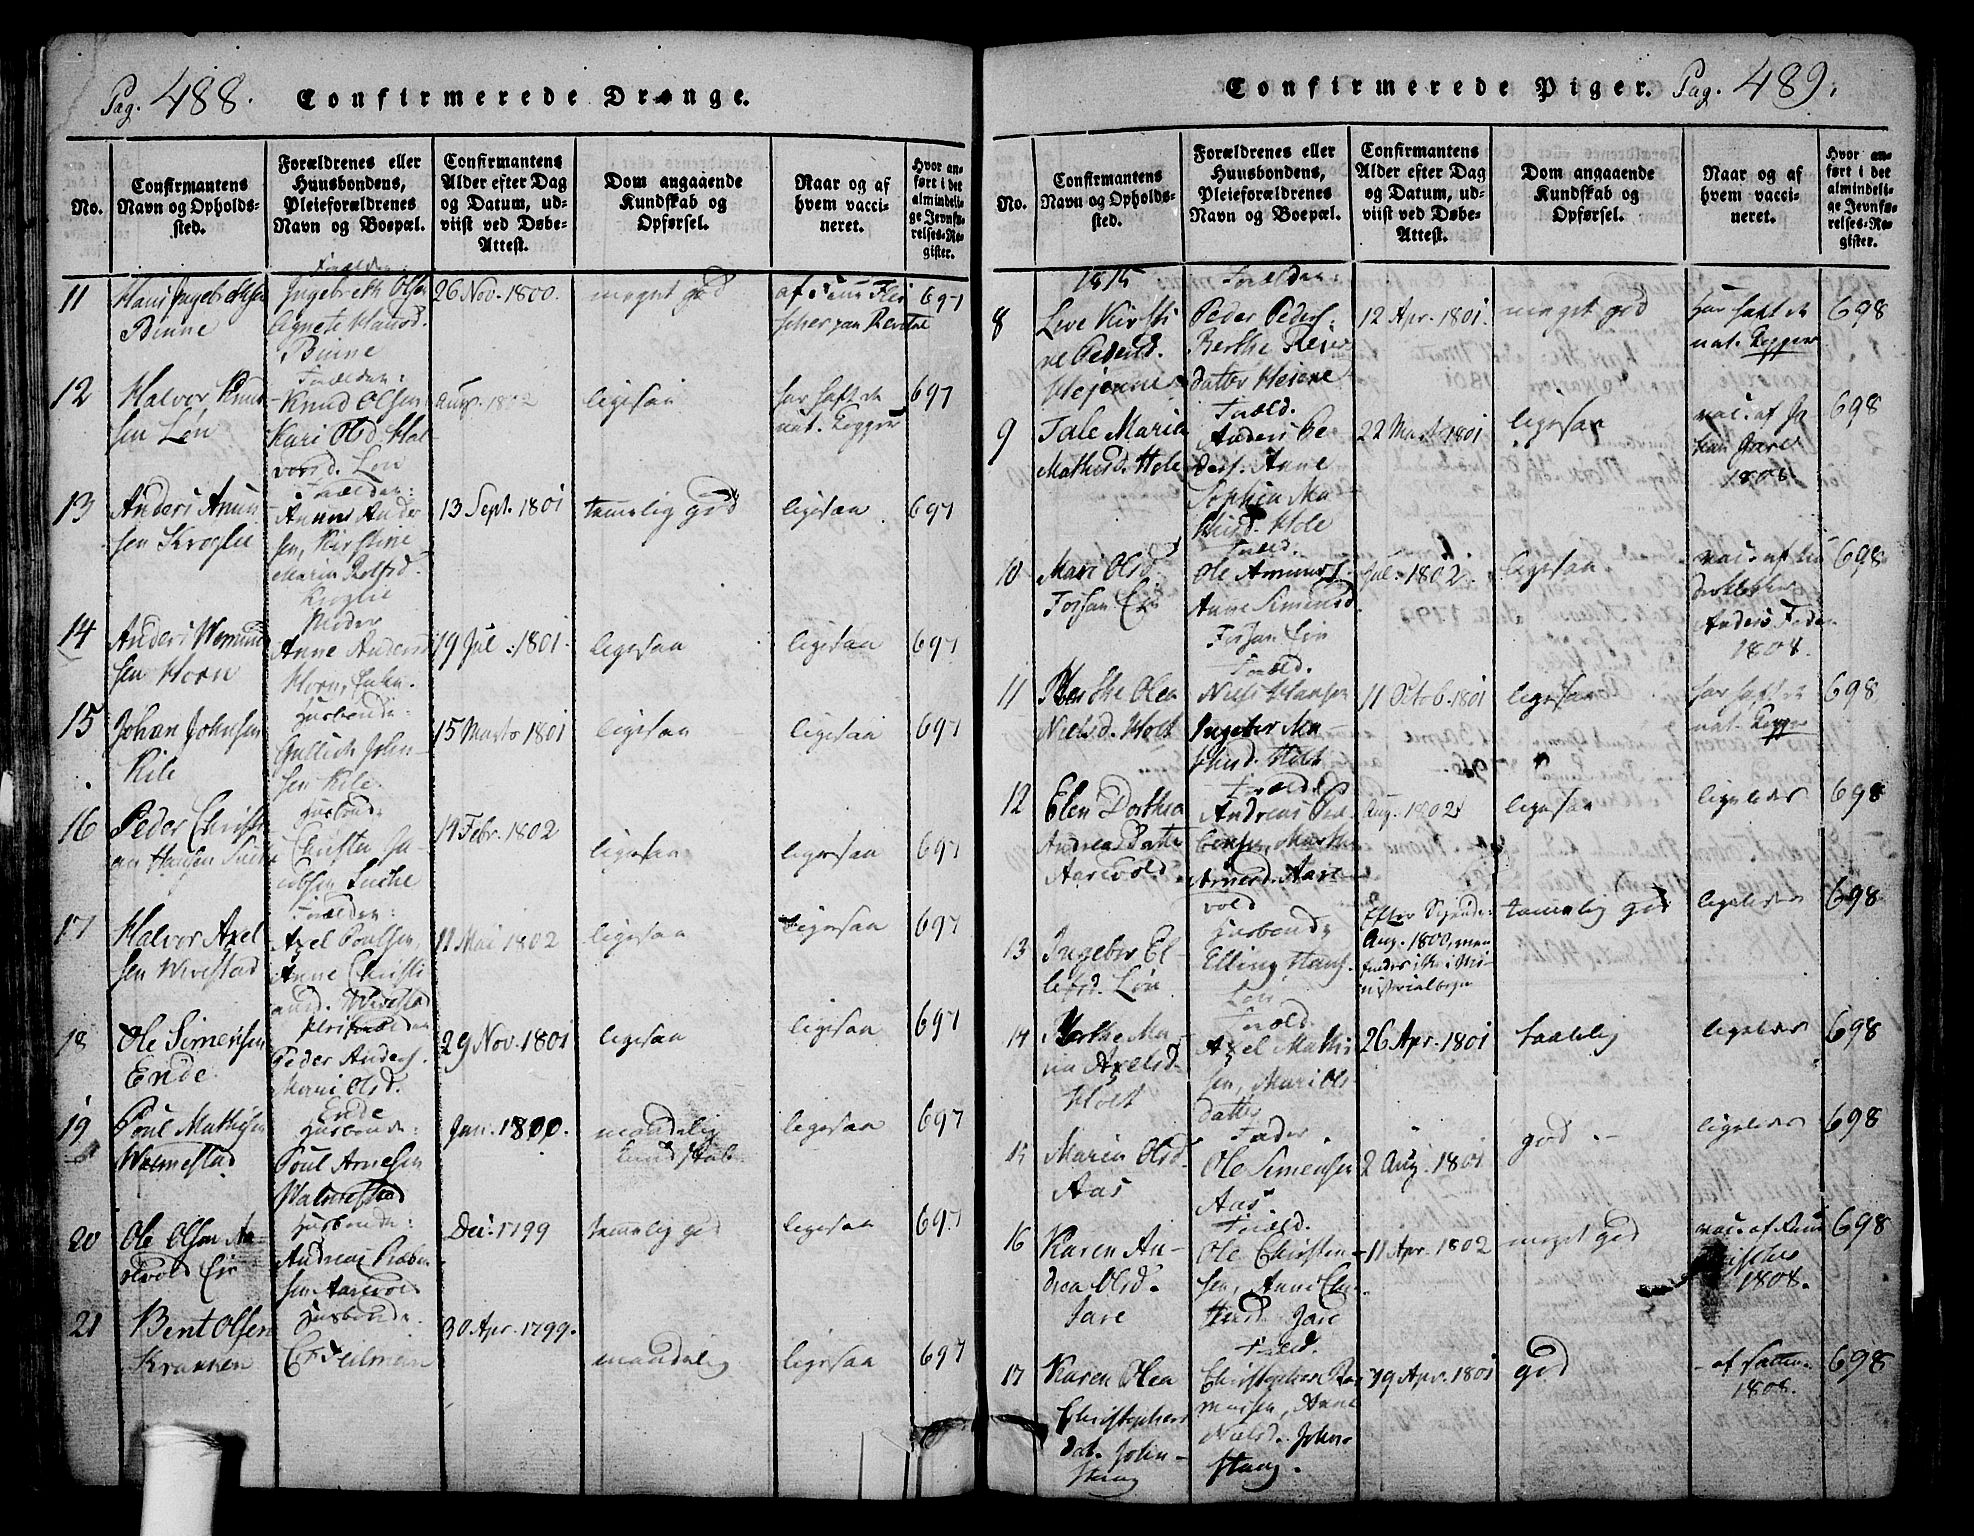 Pag. 488. Confirmerede Drenge.
No.
Confirmantens
Navn og Opholds-
sted.
Forældrenes eller
Huusbondens,
Pleieforældrenes
Navn og Boepæl.
Confirmantens
Alder efter Dag
og Datum, ud-
viist ved Døbe-
Attest.
Dom angaaende
Kundskab og
Opførsel.
Naar og af
hvem vacci-
neret.
Hvor an-
ført i det
almindeli-
ge Jevnfø-
relses-Re-
gister.
11
Hans Ingebrethsen
Binne
Forældre
Ingebreth Olsen
Agnete Hansd.
Binne
26 Nov. 1800.
meget god
697
12
Halvor Knud
sen Løn
Forældre:
Knud Olsen
Kari Olsd. Hal-
vorsd. Løn
Aug. 1802
ligesaa
har haft de
nat. Kopper
697
13
Anders Anun
sen Kroglie
Forældre:
Ander
sen, Kirstine
Maria Rolfsd.
Kroglie
13 Sept. 1801
temelig god
ligesaa
697
14
Anders Wemund
sen Horn
Moder
Anne Anders
Horn, Enke.
19 Jul. 1801.
ligesaa
ligesaa
697
15
Johan Johnsen
Kile
Husbonde:
Gullich John-
sen Kile.
15 Marts 1801
ligesaa
ligesaa
697
16
Peder Christi
an Hansen
Husbonde
Christen Ja-
cobsen
19 Febr. 1802
ligesaa
ligesaa
697
17
Halvor Axel
sen Wivestad
Forældre:
Axel Poulsen,
Anne Christi
ansd. Wivestad
11 Mai 1802
ligesaa
ligesaa
697
18
Ole Simensen
Ende.
Pleieforældre
Peder Anders.
Mari Olsd.
Ende
29 Nov. 1801
ligesaa
ligesaa
697
19
Poul Mathisen
Walmestad
Husbonde:
Poul Arnesen
Walmestad
Jan. 1800.
maadelig
Kundskab
ligesaa
697
20
Ole Olsen Aa-
revold Eie
Husbonde:
Andreas
sen Aarevold
Dec. 1799
temelig god
ligesaa
697
21
Bent Olsen
Kraanen
Husbonde.
30 Apr. 1799.
maadelig
ligesaa
697
Confirmerede Piger. Pag. 489.
No.
Confirmantens
Navn og Opholds-
sted.
Forældrenes eller
Huusbondens,
Pleieforældrenes
Navn og Boepæl.
Confirmantens
Alder efter Dag
og Datum, ud-
viist ved Døbe-
Attest.
Dom angaaende
Kundskab og
Opførsel.
Naar og af
hvem vacci-
neret.
Hvor an-
ført i det
almindeli-
ge Jevnfø-
relses-Re-
gister.
1815
8
Live Kirsti
ne Pedersd.
Hejenne
Forældre:
Peder Peders.
Berthe
datter
12 Apr. 1801.
meget god
har haft de
nat. Kopper
698
9
Tale Maria
Mathisd. Hole
Foræld.
Anders Pe
ders. Anne
Sophia Ma-
thisd. Hole
22 Marts 1801
ligesaa
vac. af Jo
han Jare
1808.
698
10
Mari Olsd.
Torsan Eie
Foræld.
Ole
Anne Simensd.
Torsan Eie
Jul. 1802.
ligesaa
vac. af
Anders
1808.
698
11
Berthe Olea
Nielsd. Holt
Foræld.
Niels Hansen
Ingebor Ma-
thisd. Holt
11 Octob. 1801
ligesaa
har haft de
nat. Kopper
698
12
Elen Dorthea
Andreasdatter
Aarevold.
Forældre
Andreas
Marthe
Arnesd. Aare-
vold
Aug. 1802
ligesaa
ligeledes
698
13
Ingebor El-
lefsd. Løn
Husbonde
Elling Hans.
Løn
Efter Sigende
Aug. 1800, men
findes ikke i Mi-
nisterialbogen
temelig god
ligeledes
698
14
Marthe Ma-
ria Axelsd.
Holt
Foræld.
Axel Mathi
sen, Mari Ols
datter
26 Apr. 1801
taalelig
ligeledes
698
15
Maria Olsd.
Aas
Fader
Ole Simensen
Aas.
2 Aug. 1801
god
ligeledes
698
16
Karen An-
drea Olsd.
Jare
Foræld.
Ole Christen-
sen, Anne
Jare
11 Apr. 1802
meget god
vac. af
1808.
698
17
Karen Olea
Christophers
dat. John-
stang
Foræld.
Christopher Ras
musen, Anne
Nielsd. John-
stang.
19 Apr. 1801
god
1808.
698